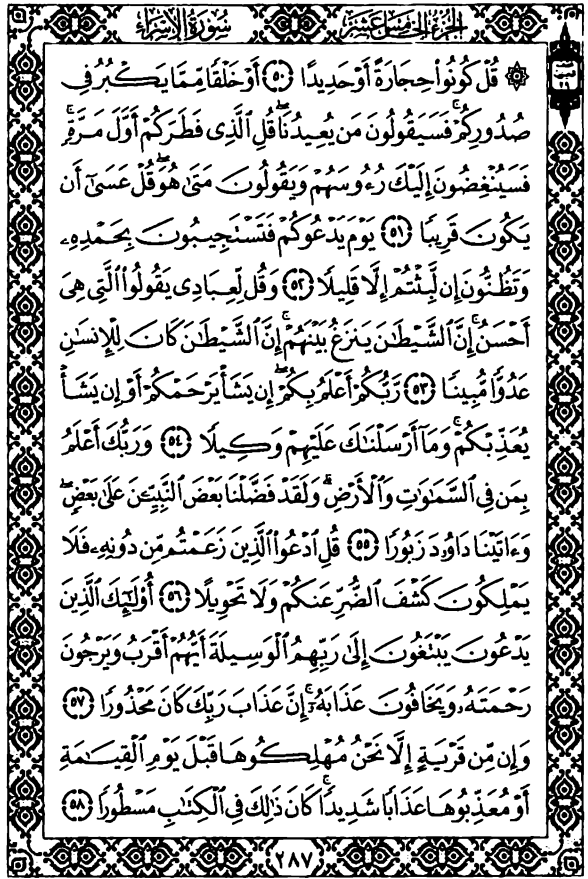 الجزء الخامس عشر سورة الإسراء
۞ قُلْ كُونُوا۟ حِجَارَةً أَوْ حَدِيدًا ٥٠ أَوْ خَلْقًا مِّمَّا يَكْبُرُ فِى
صُدُورِكُمْ ۚ فَسَيَقُولُونَ مَن يُعِيدُنَا ۖ قُلِ ٱلَّذِى فَطَرَكُمْ أَوَّلَ مَرَّةٍ ۚ
فَسَيُنْغِضُونَ إِلَيْكَ رُءُوسَهُمْ وَيَقُولُونَ مَتَىٰ هُوَ ۖ قُلْ عَسَىٰٓ أَن
يَكُونَ قَرِيبًا ٥١ يَوْمَ يَدْعُوكُمْ فَتَسْتَجِيبُونَ بِحَمْدِهِۦ
وَتَظُنُّونَ إِن لَّبِثْتُمْ إِلَّا قَلِيلًا ٥٢ وَقُل لِّعِبَادِى يَقُولُوا۟ ٱلَّتِى هِىَ
أَحْسَنُ ۚ إِنَّ ٱلشَّيْطَٰنَ يَنزَغُ بَيْنَهُمْ ۚ إِنَّ ٱلشَّيْطَٰنَ كَانَ لِلْإِنسَٰنِ
عَدُوًّا مُّبِينًا ٥٣ رَّبُّكُمْ أَعْلَمُ بِكُمْ ۖ إِن يَشَأْ يَرْحَمْكُمْ أَوْ إِن يَشَأْ
يُعَذِّبْكُمْ ۚ وَمَآ أَرْسَلْنَٰكَ عَلَيْهِمْ وَكِيلًا ٥٤ وَرَبُّكَ أَعْلَمُ
بِمَن فِى ٱلسَّمَٰوَٰتِ وَٱلْأَرْضِ ۗ وَلَقَدْ فَضَّلْنَا بَعْضَ ٱلنَّبِيِّۦنَ عَلَىٰ بَعْضٍ ۖ
وَءَاتَيْنَا دَاوُۥدَ زَبُورًا ٥٥ قُلِ ٱدْعُوا۟ ٱلَّذِينَ زَعَمْتُم مِّن دُونِهِۦ فَلَا
يَمْلِكُونَ كَشْفَ ٱلضُّرِّ عَنكُمْ وَلَا تَحْوِيلًا ٥٦ أُو۟لَٰٓئِكَ ٱلَّذِينَ
يَدْعُونَ يَبْتَغُونَ إِلَىٰ رَبِّهِمُ ٱلْوَسِيلَةَ أَيُّهُمْ أَقْرَبُ وَيَرْجُونَ
رَحْمَتَهُۥ وَيَخَافُونَ عَذَابَهُۥٓ ۚ إِنَّ عَذَابَ رَبِّكَ كَانَ مَحْذُورًا ٥٧
وَإِن مِّن قَرْيَةٍ إِلَّا نَحْنُ مُهْلِكُوهَا قَبْلَ يَوْمِ ٱلْقِيَٰمَةِ
أَوْ مُعَذِّبُوهَا عَذَابًا شَدِيدًا ۚ كَانَ ذَٰلِكَ فِى ٱلْكِتَٰبِ مَسْطُورًا ٥٨
٢٨٧